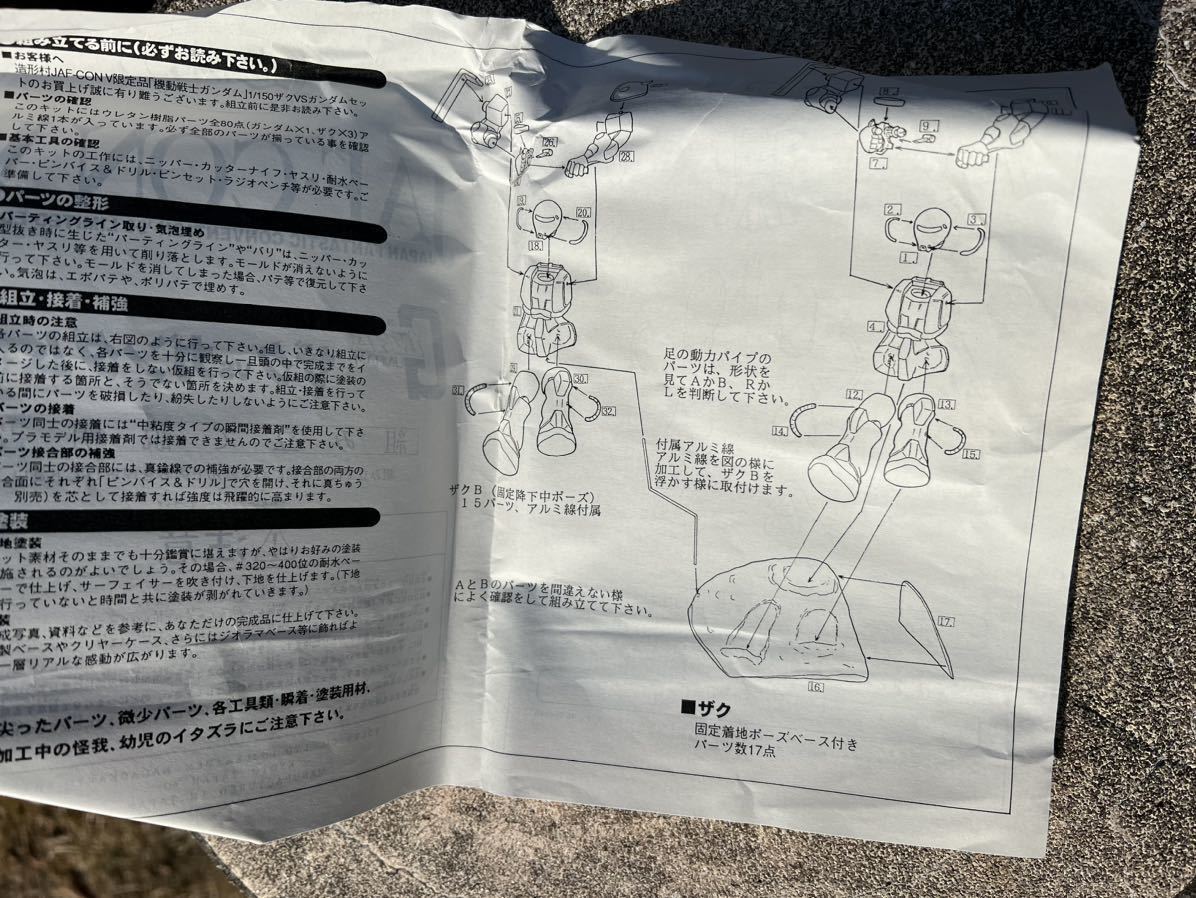 組み立てる前に(必ずお読み下さい。)
■お客様へ
造形村JAF-CON V限定品「機動戦士ガンダム」1/150ザクVSガンダムセッ
トのお買上げ誠に有り難うございます。組立前に是非お読み下さい。
■パーツの確認
このキットにはウレタン樹脂パーツ全80点(ガンダム×1、ザク×3)ア
ルミ線1本が入っています。必ず全部のパーツが揃っている事を確認
して下さい。
■基本工具の確認
このキットの工作には、ニッパー・カッターナイフ・ヤスリ・耐水ペー
パー・ピンバイス&ドリル・ピンセット・ラジオペンチ等が必要です。ご
準備して下さい。
のパーツの整形
パーティングライン取り・気泡埋め
型抜き時に生じた"パーティングライン"や"バリ"は、ニッパー・カッ
ター・ヤスリ等を用いて削り落とします。モールドが消えないように
行って下さい。モールドを消してしまった場合、パテ等で復元して下さ
い。気泡は、エポパテや、ポリパテで埋めす。
組立・接着・補強
組立時の注意
各パーツの組立は、右図のように行って下さい。但し、いきなり組立に
入るのではなく、各パーツを十分に観察し一旦頭の中で完成までをイ
メージした後に、接着をしない仮組を行って下さい。仮組の際に塗装の
前に接着する箇所と、そうでない箇所を決めます。組立・接着を行って
いる間にパーツを破損したり、紛失したりしないようにご注意下さい。
パーツの接着
パーツ同士の接着には"中粘度タイプの瞬間接着剤"を使用して下さ
い。プラモデル用接着剤では接着できませんのでご注意下さい。
パーツ接合部の補強
パーツ同士の接合部には、真鍮線での補強が必要です。接合部の両方の
合面にそれぞれ「ピンバイス&ドリル」で穴を開け、それに真ちゅう
別売)を芯として接着すれば強度は飛躍的に高まります。
塗装
地塗装
ット素材そのままでも十分鑑賞に堪えますが、やはりお好みの塗装
施されるのがよいでしょう。その場合、#320〜400位の耐水ペー
ーで仕上げ、サーフェイサーを吹き付け、下地を仕上げます。(下地
行っていないと時間と共に塗装が剥がれていきます。)
装
成写真、資料などを参考に、あなただけの完成品に仕上げて下さい。
製ベースやクリヤーケース、さらにはジオラマベース等に飾ればよ
一層リアルな感動が広がります。
尖ったパーツ、微少パーツ、各工具類・瞬着・塗装用材、
加工中の怪我、幼児のイタズラにご注意下さい。
26.
28.
20.
18.
31.
30.
32.
ザクB(固定降下中ポーズ)
15パーツ、アルミ線付属
AとBのパーツを間違えない様
によく確認をして組み立てて下さい。
8.
9.
7.
2.
3.
1.
4.
足の動力パイプの
パーツは、形状を
見てAかB、Rか
Lを判断して下さい。
12.
13.
14.
15.
付属アルミ線
アルミ線を図の様に
加工して、ザクBを
浮かす様に取付けます。
17.
16.
■ザク
固定着地ポーズベース付き
パーツ数17点